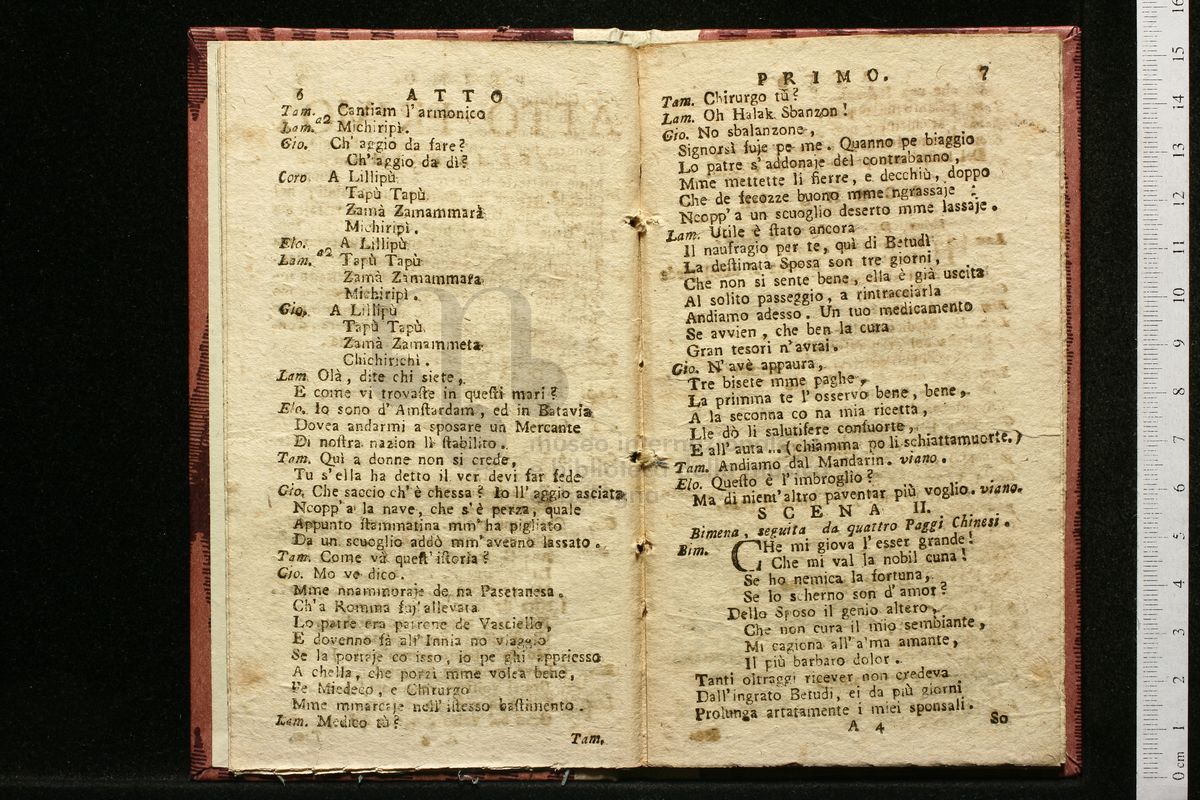 6 ATTO
Tam. a2 Cantiam l'armonico
Lam. Michiripì.
Gio. Ch' aggio da fare?
Ch' aggio da dì?
Coro. A Lillipù
Tapù Tapù
Zamà Zamammarà
Michiripì.
Elo. a2 A Lillipù
Lam. Tapù Tapù
Zamà Zamammara
Michiripì.
Gio. A Lillipù
Tapù Tapù
Zamà Zamammeta
Chichirichì.
Lam. Olà, dite chi siete,
E come vi trovaste in questi mari?
Elo. Io sono d'Amstardam, ed in Batavia
Dovea andarmi a sposare un Mercante
Di nostra nazion lì stabilito.
Tam. Quì a donne non si crede,
Tu s'ella ha detto il ver devi far fede
Gio. Che saccio ch'è chessa? Io ll'aggio asciata
Ncopp'a la nave, che s'è perza, quale
Appunto stammatina mm'ha pigliato
Da un scuoglio addò mm'aveano lassato.
Tam. Come và quest'istoria?
Gio. Mo ve dico.
Mme nnaminoraje de na Pasetanesa.
Ch'a Romma fuj'allevata
Lo patre era patrone de Vasciello,
E dovenno fà all'Innia no viaggio
Se la portaje co isso, io pe ghì appriesso
A chella, che porzì mme volea bene,
Pe Miedeco, e Chirurgo
Mme mmarcaje nell'istesso bastimento.
Lam. Medico tù?
Tam.
PRIMO. 7
Tam. Chirurgo tù?
Lam. Oh Halak Sbanzon!
Gio. No sbalanzone,
Signorsì fuje pe me. Quanno pe biaggio
Lo patre s'addonaje del contrabanno,
Mme mettette li fierre, e decchiù, doppo
Che de fecozze buono mme ngrassaje
Ncopp'a un scuoglio deserto mme lassaje.
Lam. Utile è stato ancora
Il naufragio per te, quì di Betudì
La destinata Sposa son tre giorni,
Che non si sente bene, ella è già uscita
Al solito passeggio, a rintracciarla
Andiamo adesso. Un tuo medicamento
Se avvien, che ben la cura
Gran tesori n'avrai.
Gio. N'avè appaura,
Tre bisete mme paghe,
La primma te l'osservo bene, bene,
A la seconna co na mia ricetta,
Lle dò li salutifere confuorte,
E all'auta... (chiamma po li schiattamuorte.)
Tam. Andiamo dal Mandarin. viano.
Elo. Questo è l'imbroglio?
Ma di nient'altro paventar più voglio. viano.
SCENA II.
Bimena, seguita da quattro Paggi Chinesi.
Bim. CHe mi giova l'esser grande!
Che mi val la nobil cuna!
Se ho nemica la fortuna,
Se lo scherno son d'amor?
Dello Sposo il genio altero,
Che non cura il mio sembiante,
Mi cagiona all'a'ma amante,
Il più barbaro dolor.
Tanti oltraggi ricever non credeva
Dall'ingrato Betudì, ei da più giorni
Prolunga artatamente i miei sponsali.
A 4 So